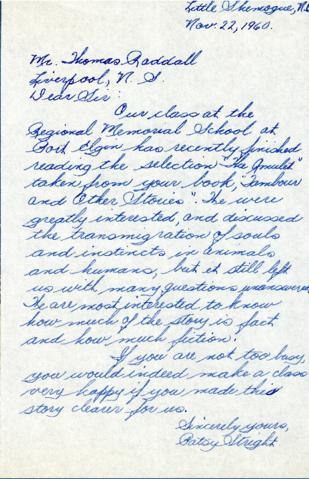 Little Shemogue, N.B.
Nov. 22, 1960.
Mr. Thomas Raddall
Liverpool, N. S.
Dear Sir:
Our class at the
Regional Memorial School at
Port Elgin has recently finished
reading the selection "The Amulet"
taken from your book, "Tambour
and Other Stories". We were
greatly interested, and discussed
the transmigration of souls
and instincts in animals
and humans, but it still left
us with many questions unanswered.
We are most interested to know
how much of the story is fact
and how much fiction.
If you are not too busy,
you would indeed make a class
very happy if you made this
story clearer for us.
Sincerely yours,
Patsy Stright